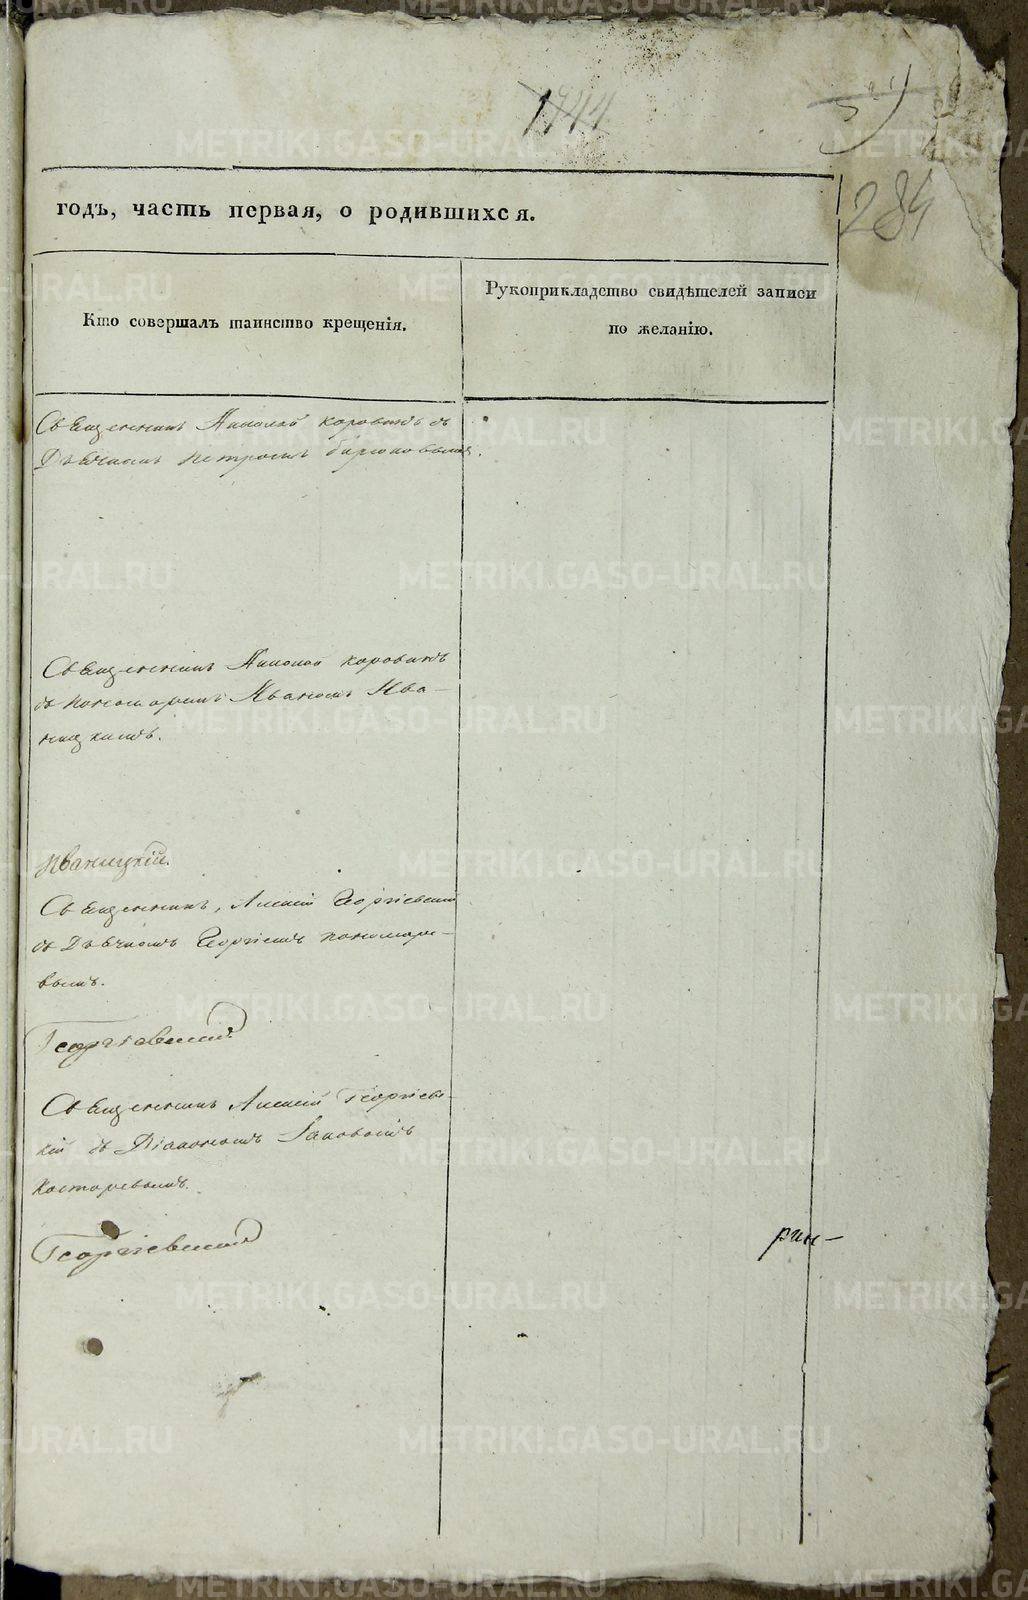 284
годъ, часть первая, о родившихся.
Кто совершалъ таинство крещенія.
Рукоприкладство свидѣтелей записи
по желанію.
Священникъ Николай Коровинъ съ
Дьячкомъ Петромъ Бирюковымъ.
Священникъ Николай Коровинъ
съ пономаремъ Иваномъ Ива-
ницкимъ.
Иваницкій.
Священникъ, Алексій Георгіевскій
съ Дьячкомъ Георгіемъ Пономаре-
вымъ.
Георгіевскій
Священникъ Алексій Георгіевс-
кій съ Діакономъ Іаковомъ
Костаревымъ.
Георгіевскій
рин-
METRIKI.GASO-URAL.RU